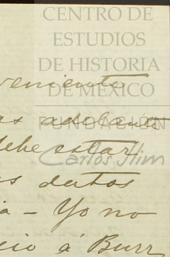 CENTRO DE
ESTUDIOS
DE HISTORIA
DE MÉXICO
FUNDACIÓN
Carlos Slim
veniente
as adelante
debe estar
s datos
a - Yo no
cio á Burr